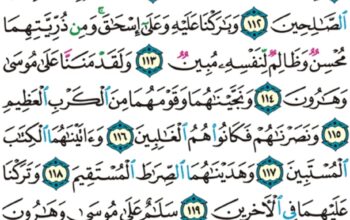 ٱلصَّٰلِحِينَ ١١٢ وَبَٰرَكْنَا عَلَيْهِ وَعَلَىٰٓ إِسْحَٰقَۚ وَمِن ذُرِّيَّتِهِمَا
مُحْسِنٌ وَظَالِمٌ لِّنَفْسِهِۦ مُبِينٌ ١١٣ وَلَقَدْ مَنَنَّا عَلَىٰ مُوسَىٰ
وَهَٰرُونَ ١١٤ وَنَجَّيْنَٰهُمَا وَقَوْمَهُمَا مِنَ ٱلْكَرْبِ ٱلْعَظِيمِ
١١٥ وَنَصَرْنَٰهُمْ فَكَانُوا۟ هُمُ ٱلْغَٰلِبِينَ ١١٦ وَءَاتَيْنَٰهُمَا ٱلْكِتَٰبَ
ٱلْمُسْتَبِينَ ١١٧ وَهَدَيْنَٰهُمَا ٱلصِّرَٰطَ ٱلْمُسْتَقِيمَ ١١٨ وَتَرَكْنَا
عَلَيْهِمَا فِى ٱلْءَاخِرِينَ ١١٩ سَلَٰمٌ عَلَىٰ مُوسَىٰ وَهَٰرُونَ